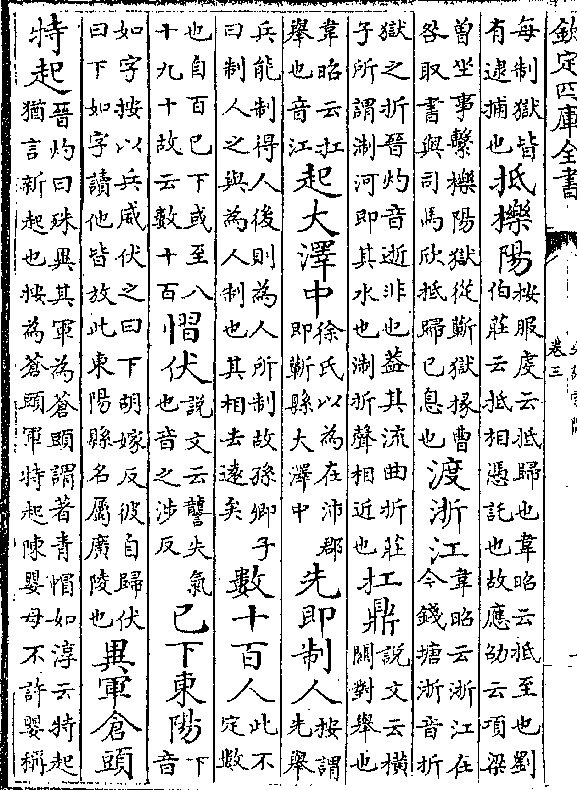 欽定四庫全書
卷三
每制獄皆有逮捕也抵櫟陽按服虔云抵歸也韋昭云抵至也劉伯莊云抵相憑託也故應劭云項梁
曾坐事繫櫟陽獄從蘄獄掾曹咎取書與司馬欣抵歸已息也渡浙江韋昭云浙江在今錢塘浙音折
獄之折晉灼音逝非也葢其流曲折莊子所謂淛河即其水也淛折聲相近也扛鼎說文云横關對舉也
韋昭云扛舉也音江起大澤中徐氏以為在沛郡即蘄縣大澤中先即制人按謂先舉
兵能制得人後則為人所制故孫卿子曰制人之與為人制也其相去遠矣數十百人此不定數
也自百已下或至八十九十故云數十百慴伏說文云讋失氣也音之涉反已下東陽下音
如字按以兵威伏之曰下胡嫁反彼自歸伏曰下如字讀他皆放此東陽縣名屬廣陵也異軍倉頭
特起晉灼曰殊異其軍為蒼頭謂著青帽如淳云特起猶言新起也按為蒼頭軍特起陳嬰母不許嬰稱